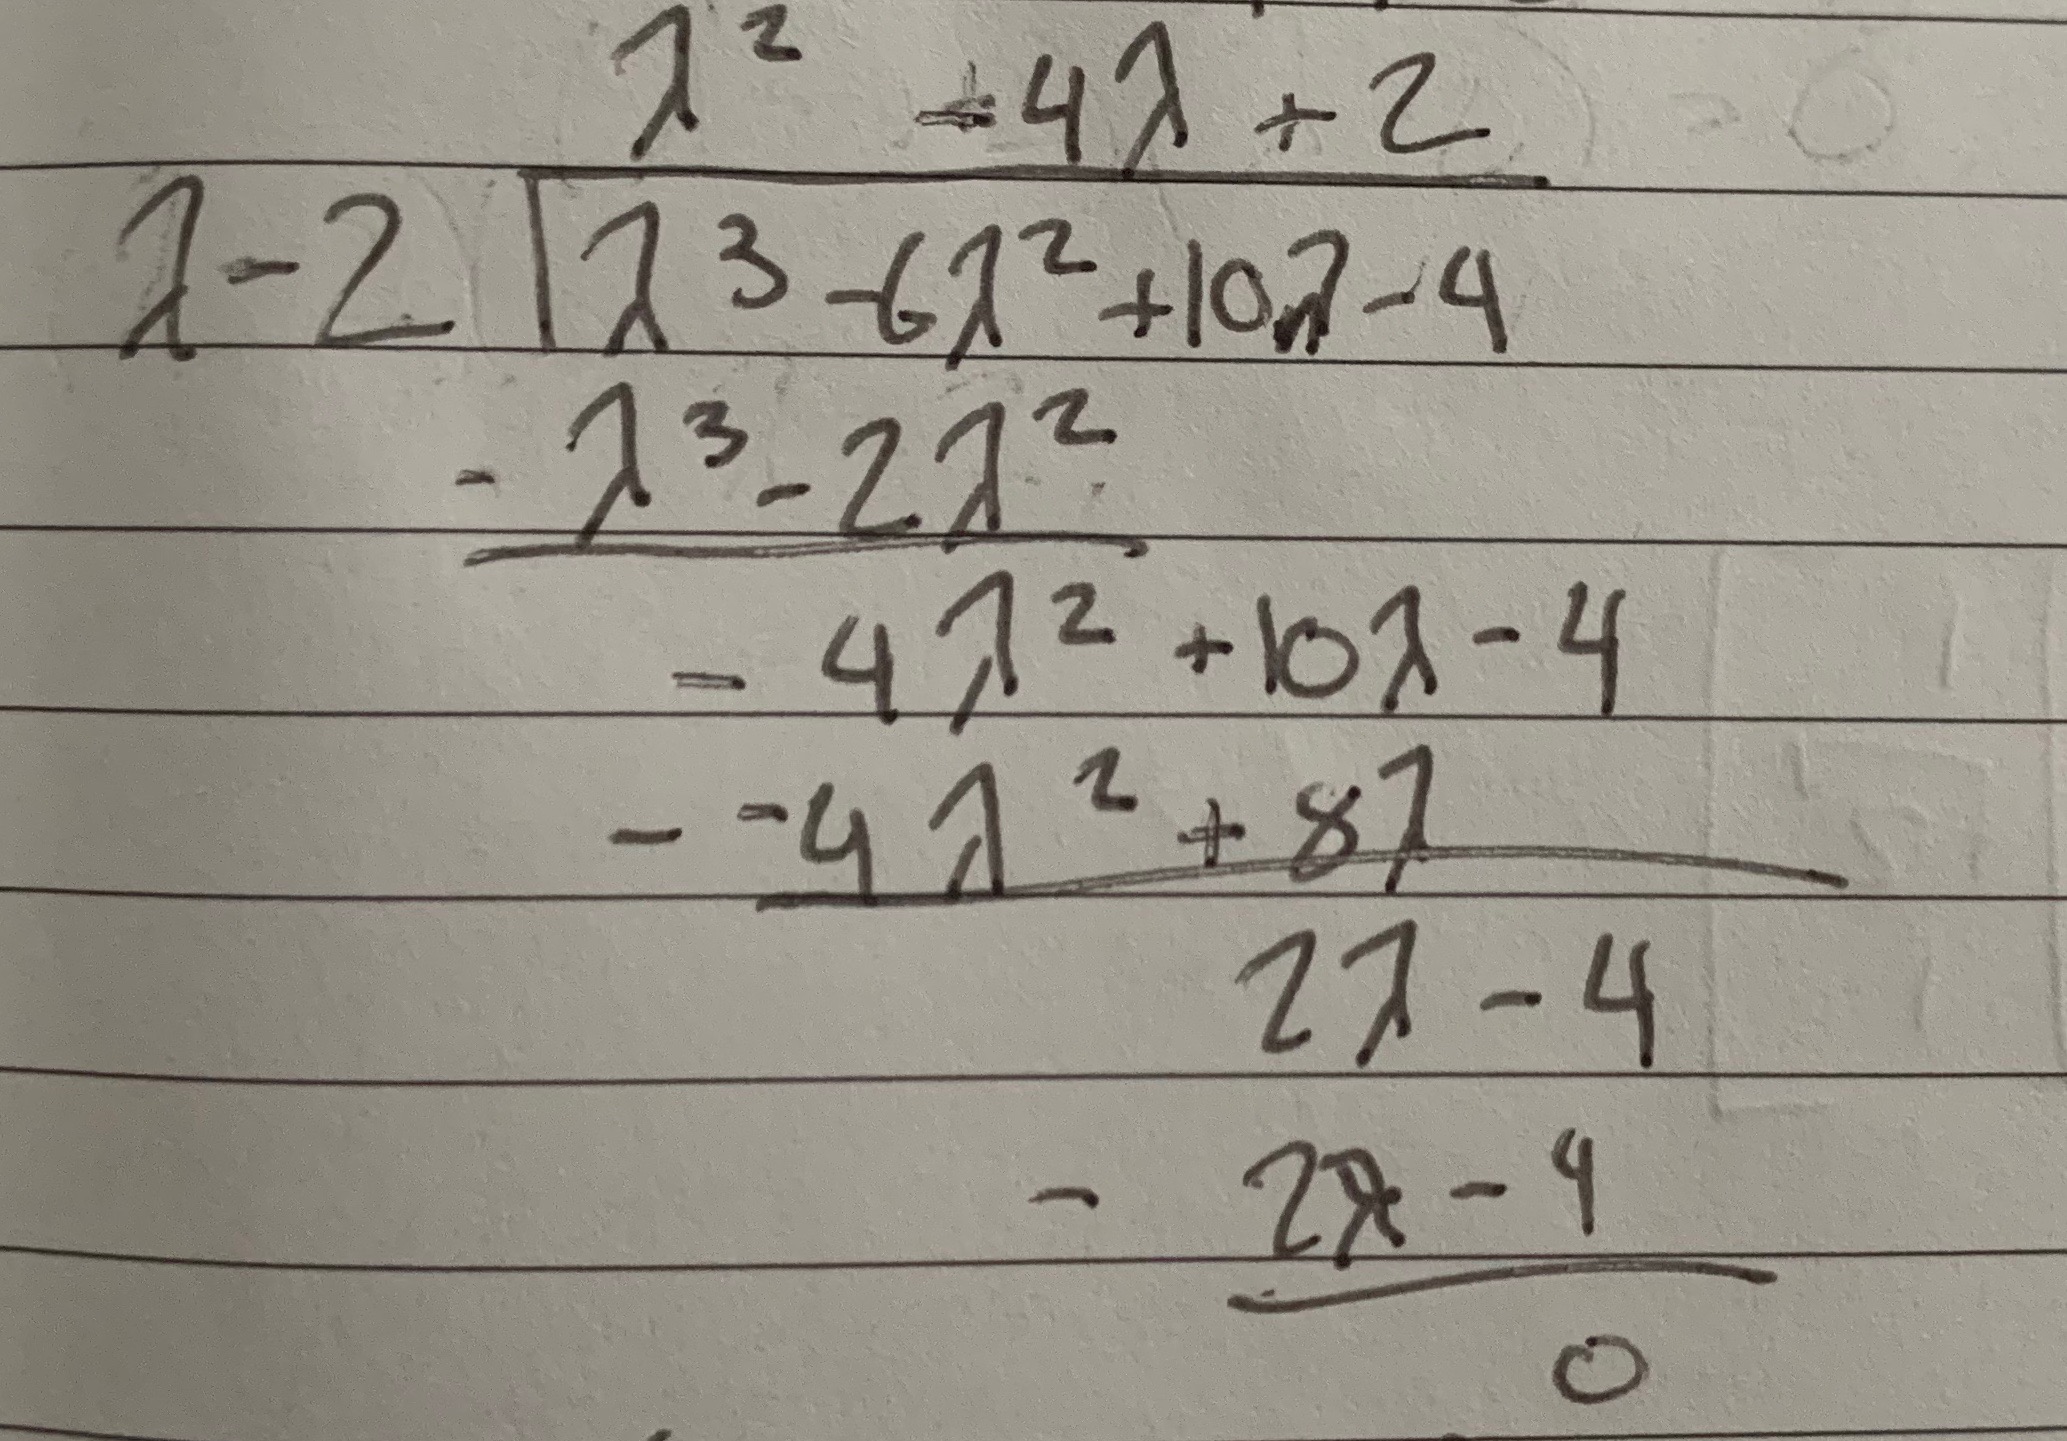 λ² - 4λ + 2
λ - 2 | λ³ - 6λ² + 10λ - 4
- λ³ - 2λ²
- 4λ² + 10λ - 4
- -4λ² + 8λ
2λ - 4
- 2λ - 4
0